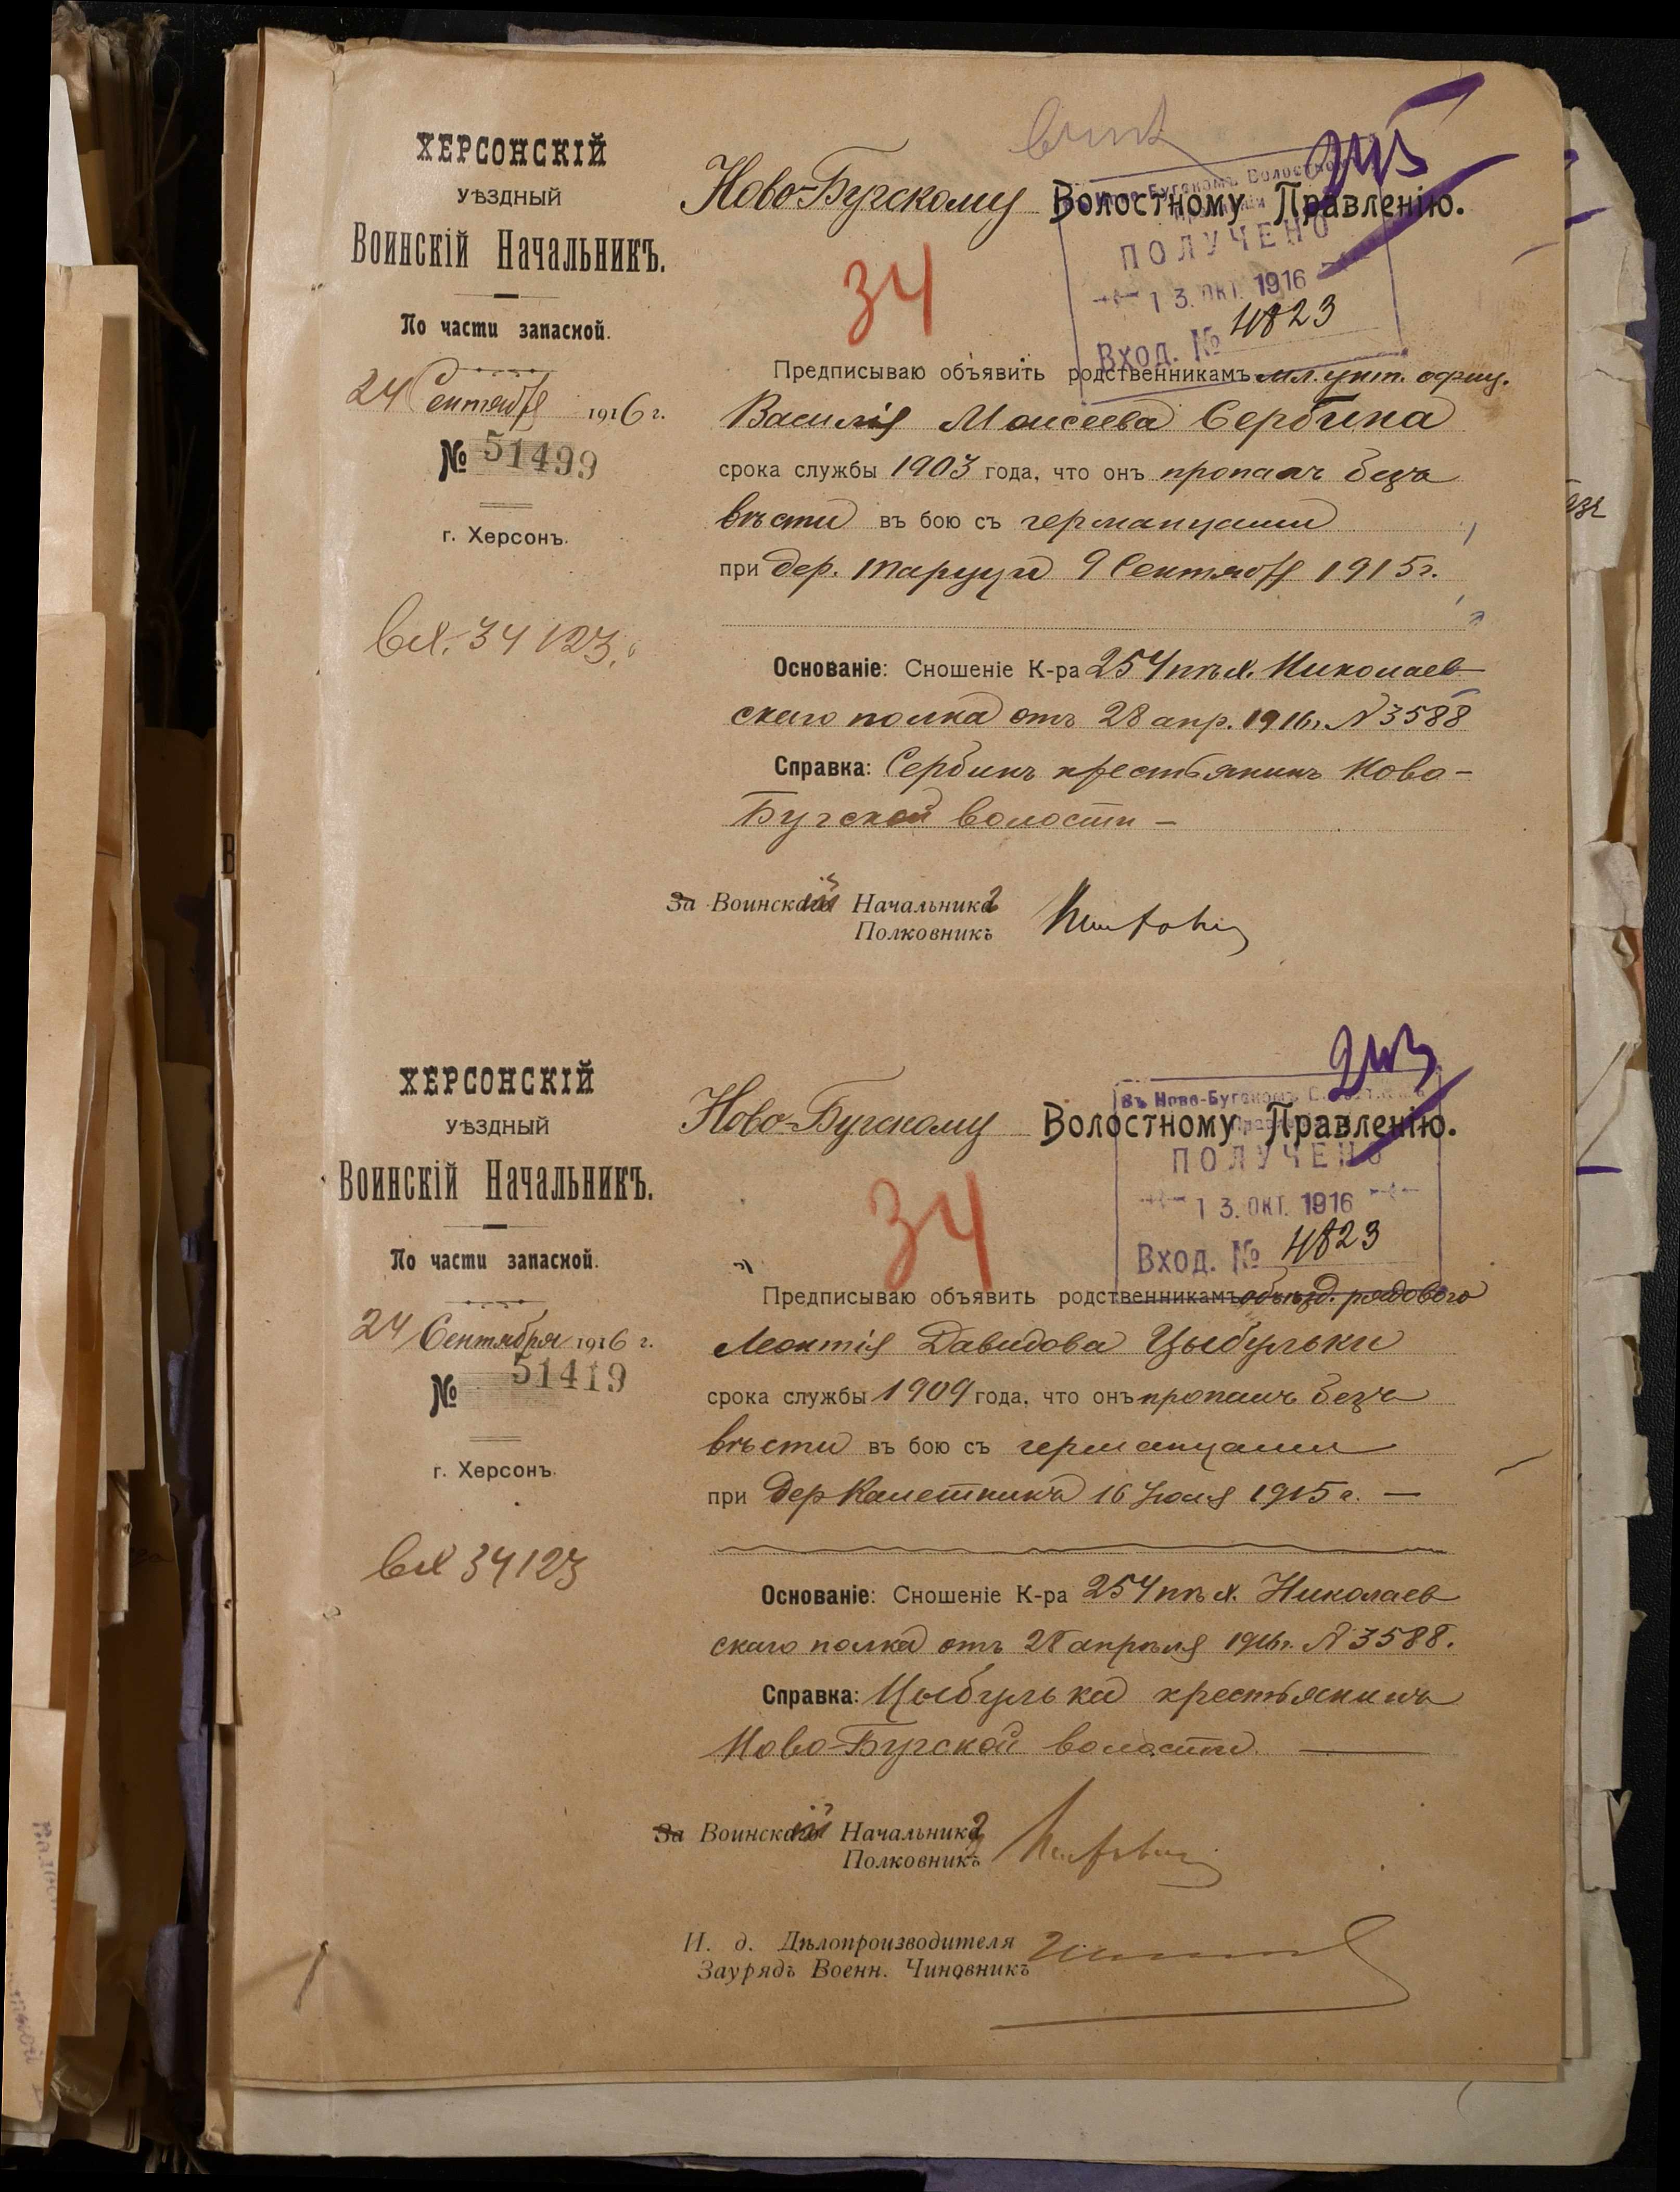 ХЕРСОНСКІЙ
УѢЗДНЫЙ
ВОИНСКІЙ НАЧАЛЬНИКЪ.
По части запасной.
24 Сентября 1916 г.
№ 51499
г. Херсонъ.
Вх. 34123.
Ново-Бугскому Волостному Правленію.
34
ПОЛУЧЕНО
13. ОКТ. 1916
Вход. № 4823
Предписываю объявить родственникамъ мл. унт. офиц.
Василія Моисеева Сербина
срока службы 1903 года, что онъ пропалъ безъ
вѣсти въ бою съ германцами
при дер. 9 Сентября 1915 г.
Основаніе: Сношеніе К-ра 254 пѣх. Николаев-
скаго полка отъ 28 апр. 1916 г. № 3588
Справка: Сербинъ крестьянинъ Ново-
Бугской волости —
За Воинскій Начальникъ
Полковникъ
ХЕРСОНСКІЙ
УѢЗДНЫЙ
ВОИНСКІЙ НАЧАЛЬНИКЪ.
По части запасной.
24 Сентября 1916 г.
№ 51419
г. Херсонъ.
Вх 34123
Ново-Бугскому Волостному Правленію.
34
Въ Ново-Бугскомъ
ПОЛУЧЕНО
13. ОКТ. 1916
Вход. № 4823
Предписываю объявить родственникамъ рядового
Леонтія Давидова Цыбульки
срока службы 1909 года, что онъ пропалъ безъ
вѣсти въ бою съ германцами
при дер 16 Іюля 1915 г. —
Основаніе: Сношеніе К-ра 254 пѣх. Николаев
скаго полка отъ 28 апрѣля 1916 г. № 3588.
Справка: Цыбулька крестьянинъ
Ново-Бугской волости. —
За Воинскій Начальникъ
Полковникъ
И. д. Дѣлопроизводителя
Заурядъ Военн. Чиновникъ